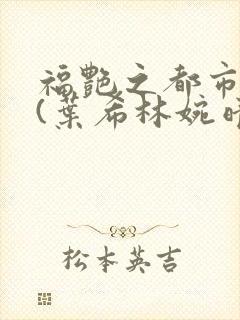 福艷之都市
(葉希林婉晴
松本英吉